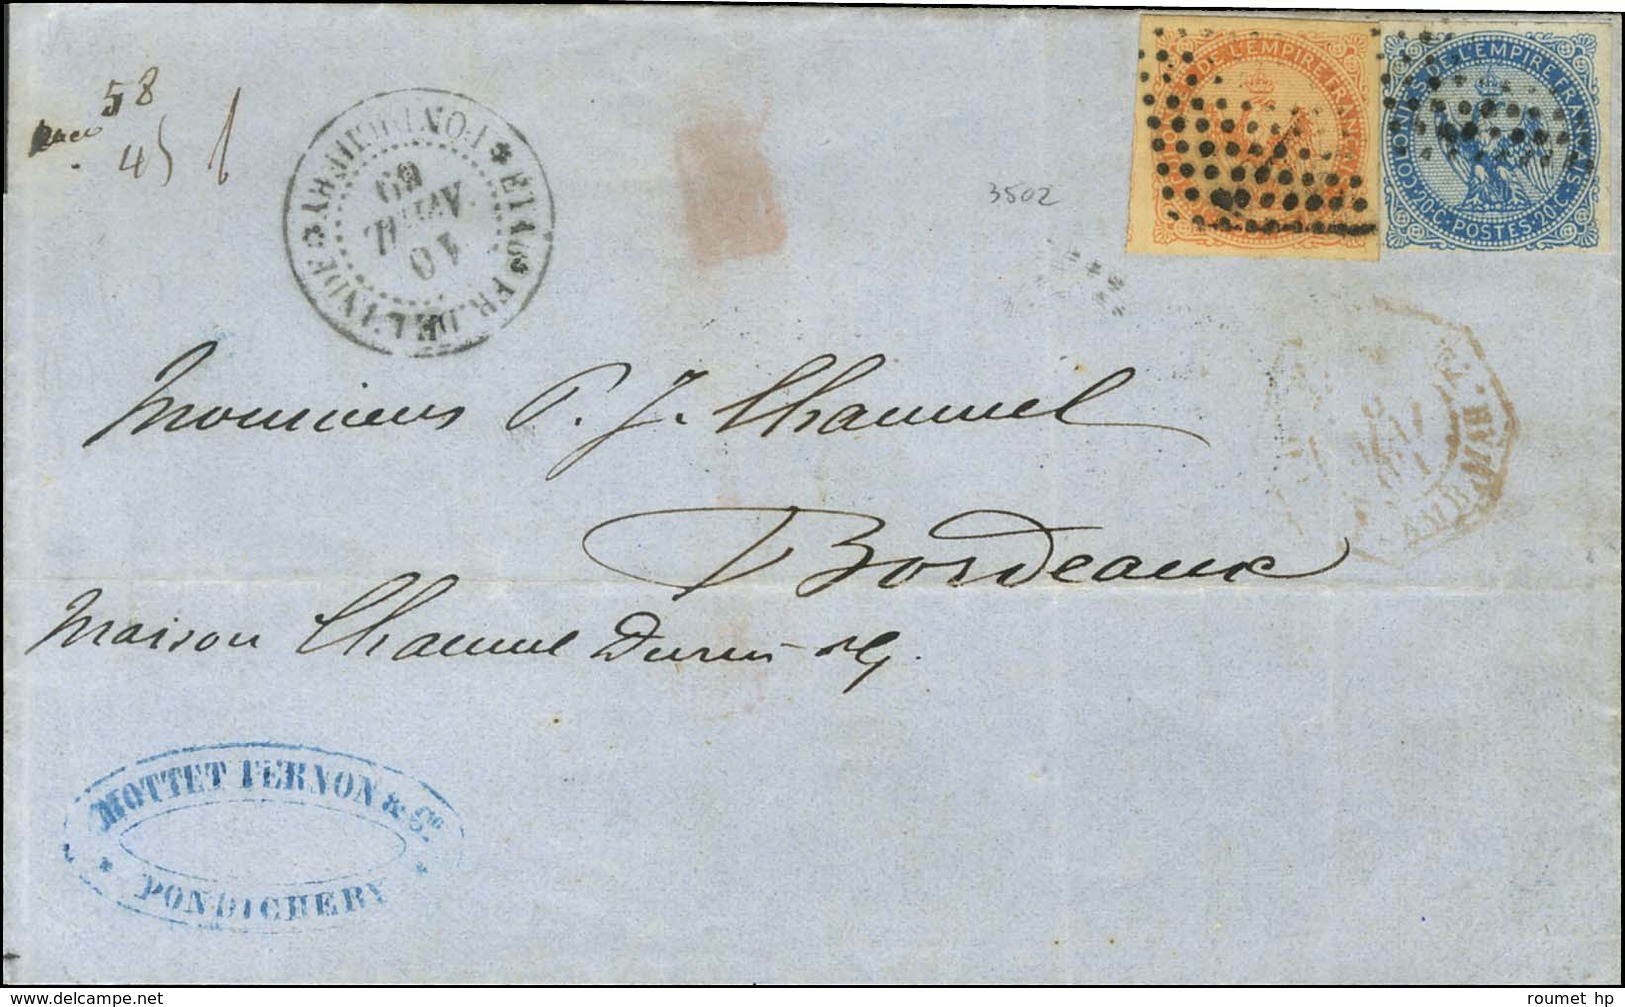 58
45
3502
ETABS FR. DE L'INDE * PONDICHERY *
10
AVRIL
69
DE L'EMPIRE FRANCAIS
COLONIES DE L'EMPIRE FRANCAIS.
20.C. POSTES. 20.C.
Monsieur P. J. Chaumel
Bordeaux
Maison Chaumel Durin &
MAI
MAR
MOTTET PERNON & Cie
PONDICHERY
delcampe.net
roumet hp